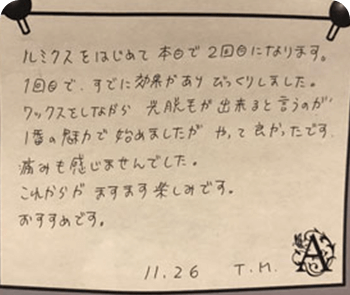 ルミクスをはじめて 本日で 2回目になります。
1回目で、すでに効果があり びっくりしました。
ワックスをしながら 光脱毛が出来ると言うのが
1番の魅力で始めましたが やって良かったです
痛みも感じませんでした。
これからが ますます楽しみです。
おすすめです。
11.26 T.M.
A